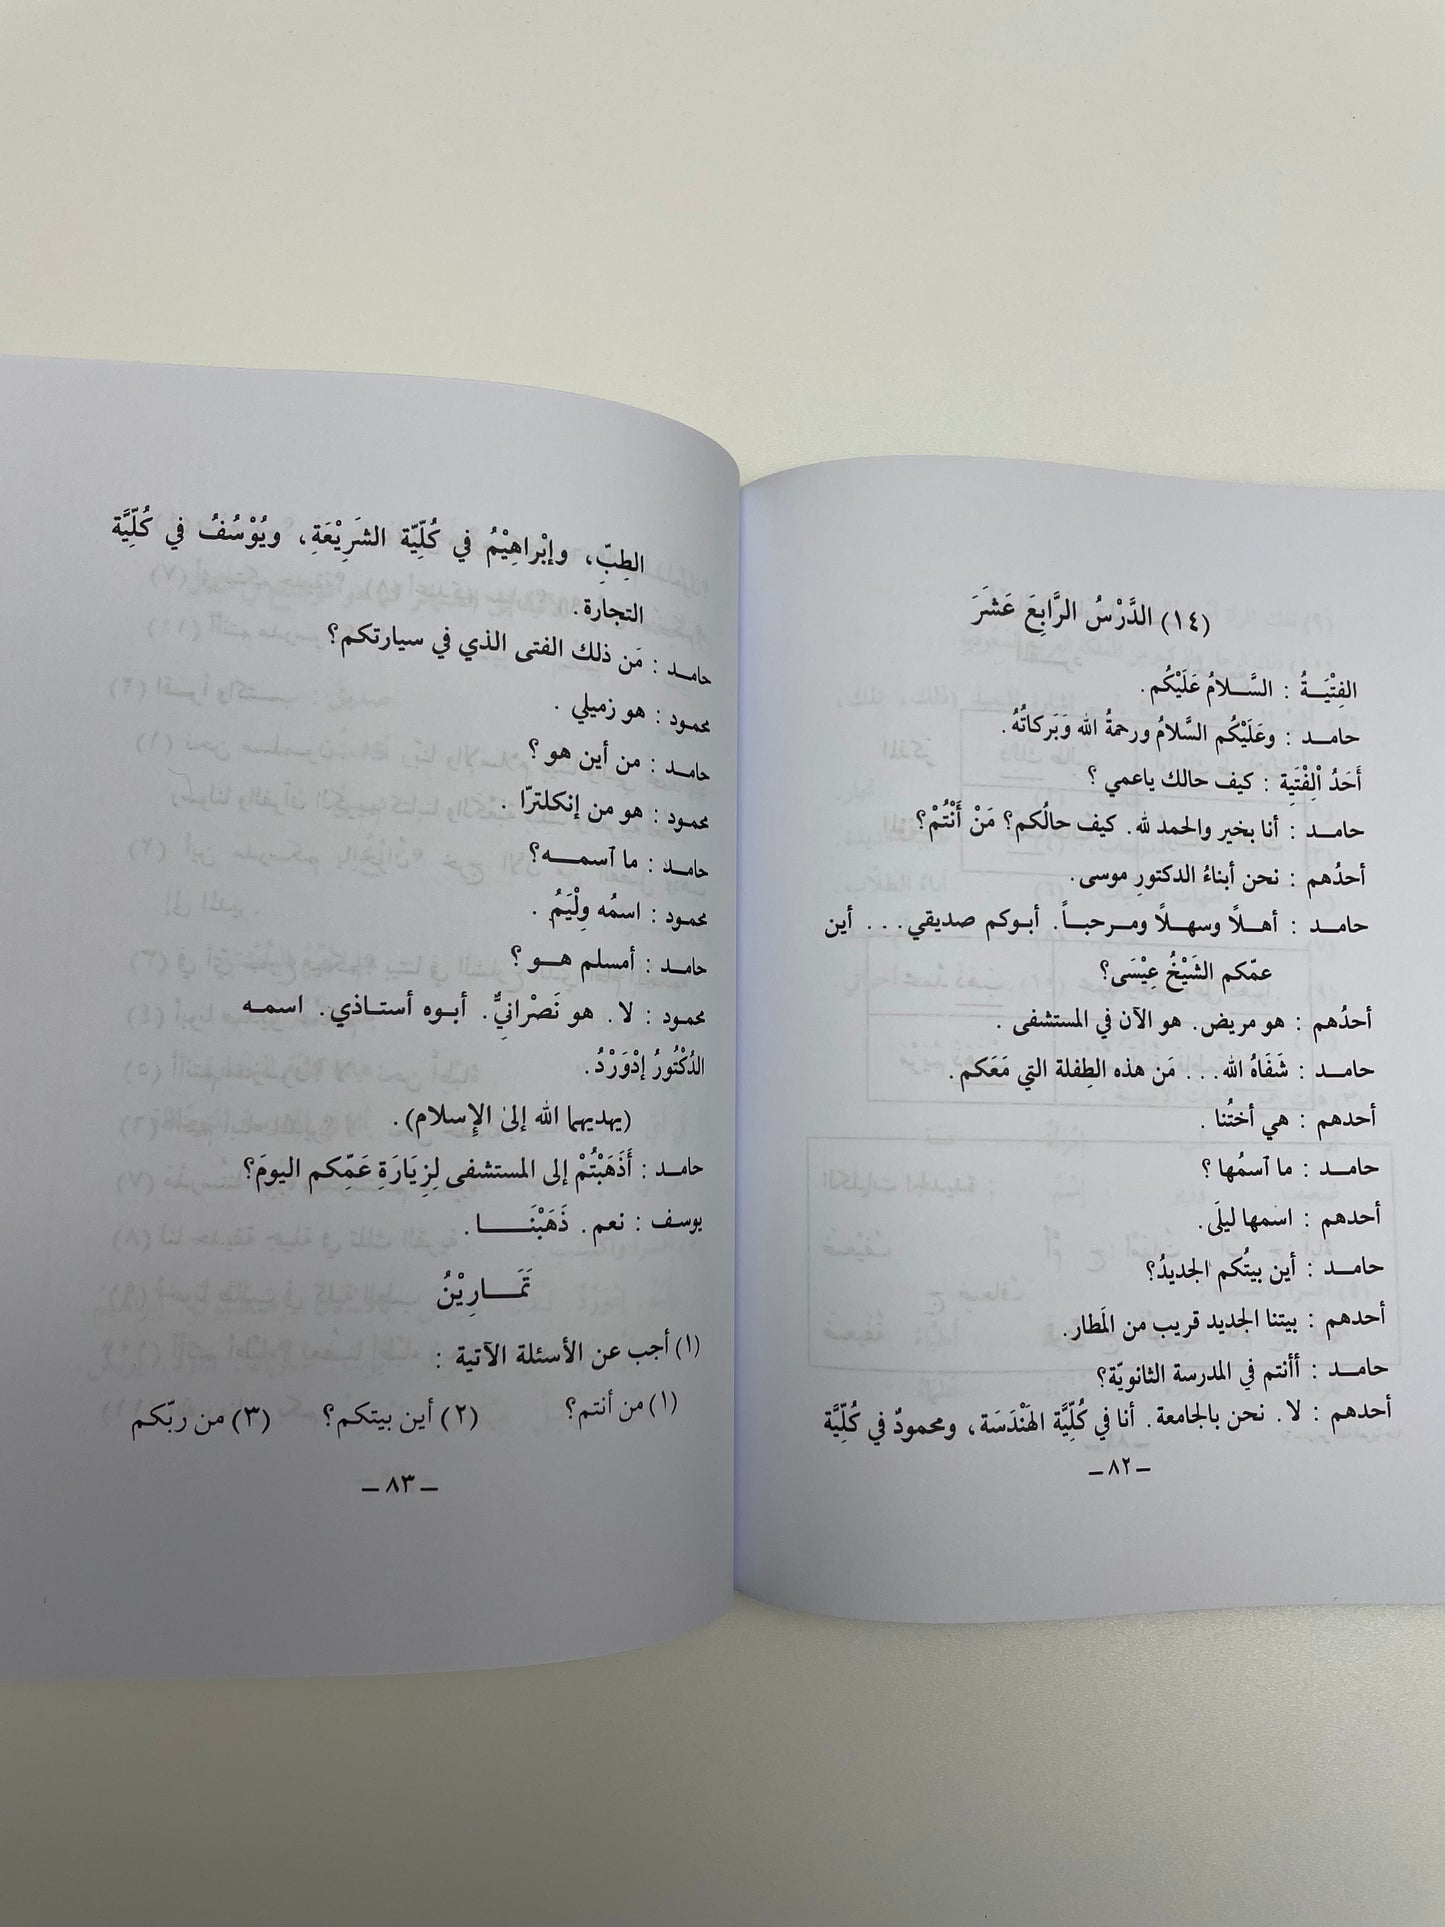 (١٤) الدَّرْسُ الرَّابِعَ عَشَرَ
الفِتْيَـــةُ : السَّـــلامُ عَلَيْكُم.
حامـــد : وعَلَيْكُم السَّلامُ ورحمةُ الله وَبَركاتُهُ.
أَحَدُ اْلِفْتَيَةِ : كيف حالك ياعمي ؟
حامـــد : أنا بخير والحمد لله. كيف حالُكم؟ مَنْ أَنْتُمْ؟
أحدُهم : نحن أبناءُ الدكتورِ موسى.
حامـــد : أهـــلاً وسهـــلاً ومـــرحبـــاً. أبـوكم صديقي... . أين
عمّكم الشَيْخُ عِيْسَى؟
أحدُهم : هو مريض. هو الآن في المستشفى .
حامـــد : شَفَاهُ الله... مَن هذه الطِفلة التي مَعَكم.
أحدهم : هي أختُنا .
حامـــد : ما ٱسمُها ؟
أحدهم : اسمها ليلَى.
حامـــد : أين بيتُكم الجديدُ؟
أحدهم : بيتنا الجديد قريب من المَطار.
حامـــد : أأنتم في المدرسة الثانويّة؟
أحدهم : لا. نحن بالجامعة. أنا في كُلِّيَّة الهَنْدَسَة، ومحمودٌ في كُلِّيَّة
– ٨٢ –
الطِبِّ، وإبْراهِيْمُ في كُلِّيّة الشَرِيْعَةِ، ويُوْسُفُ في كُلِّيَّة
التجارة.
حامـد : مَن ذلك الفتى الذي في سيارتكم؟
محمـود : هو زميلي .
حامـد : من أين هو ؟
محمـود : هو من إنكلترّا .
حامـد : ما ٱسمـــه؟
محمـود : اسمُه ولْيَمُ .
حامـد : أمسلم هـــو ؟
محمـود : لا. هو نَصْرانيٌّ. أبـوه أستـاذي. اسمـه
الدُكْتُورُ إدْوَرْدُ.
(يهديهما الله إلىٰ الإِسلام).
حامـد : أَذَهَبْتُمْ إلى المستشفى لِزِيَارَةِ عَمِّكم اليومَ؟
يوسف : نعم. ذَهَبْنَـــــا.
تَمَـــارِيْنُ
(١) أجب عن الأسئلة الآتية :
(١) من أنتم؟ (٢) أين بيتكم؟ (٣) من ربّكم
– ٨٣ –